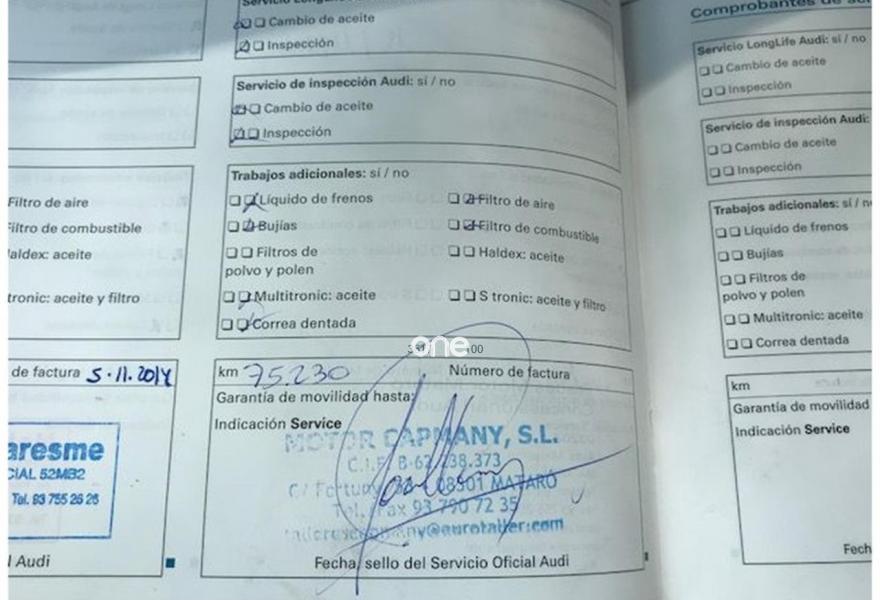 Cambio de aceite
Inspección
Servicio de inspección Audi: sí / no
Cambio de aceite
Inspección
Trabajos adicionales: sí / no
Líquido de frenos
Filtro de aire
Bujías
Filtro de combustible
Filtros de
polvo y polen
Haldex: aceite
Multitronic: aceite
S tronic: aceite y filtro
Correa dentada
one
km 75.230
Número de factura
Garantía de movilidad hasta:
Indicación Service
MOTOR CAPMANY, S.L.
C.I.F. B-62.238.373
08301 MATARÓ
Tel. Fax 93 790 72 35
Fecha, sello del Servicio Oficial Audi
Filtro de aire
Filtro de combustible
aldex: aceite
tronic: aceite y filtro
de factura 5.11.2014
aresme
CIAL 52MB2
Tel. 93 755 26 26
l Audi
Comprobantes de
Servicio LongLife Audi: sí / no
Cambio de aceite
Inspección
Servicio de inspección Audi:
Cambio de aceite
Inspección
Trabajos adicionales: sí / n
Líquido de frenos
Bujías
Filtros de
polvo y polen
Multitronic: aceite
Correa dentada
km
Garantía de movilidad
Indicación Service
Fech